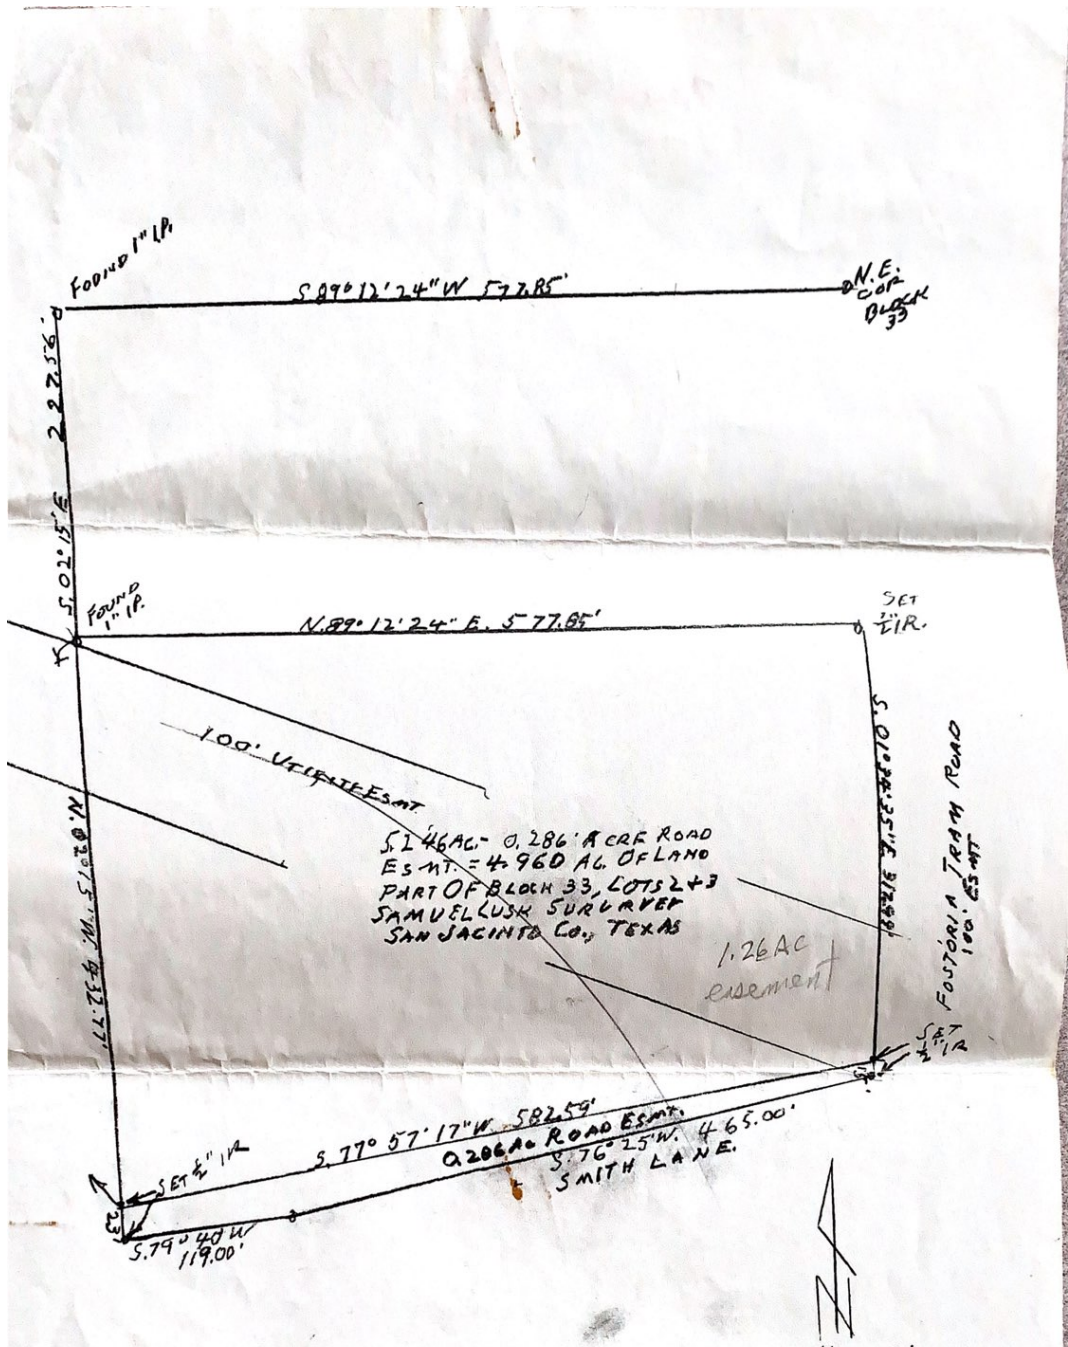 FOUND 1" I.P.
S 89° 12' 24" W 577.85'
N.E.
COR
BLOCK
33
S. 02° 15' E 227.56'
FOUND
1" I.P.
N. 89° 12' 24" E. 577.85'
SET
½" I.R.
100' UTILITY ESMT
5.246 AC - 0.286 ACRE ROAD
ESMT. = 4.960 AC. OF LAND
PART OF BLOCK 33, LOTS 2 + 3
SAMUEL LUSK SURURVEY
SAN JACINTO CO., TEXAS
1.26 AC
easement
FOSTORIA TRAM ROAD
100' ESMT
N. 02° 15' W. 432.77'
SET
½" IR
S. 77° 57' 17" W. 582.59'
0.286 AC ROAD ESMT.
S. 76° 25' W. 465.00'
SMITH LANE.
SET ½" IR
23'
S. 79° 40' W
119.00'
N